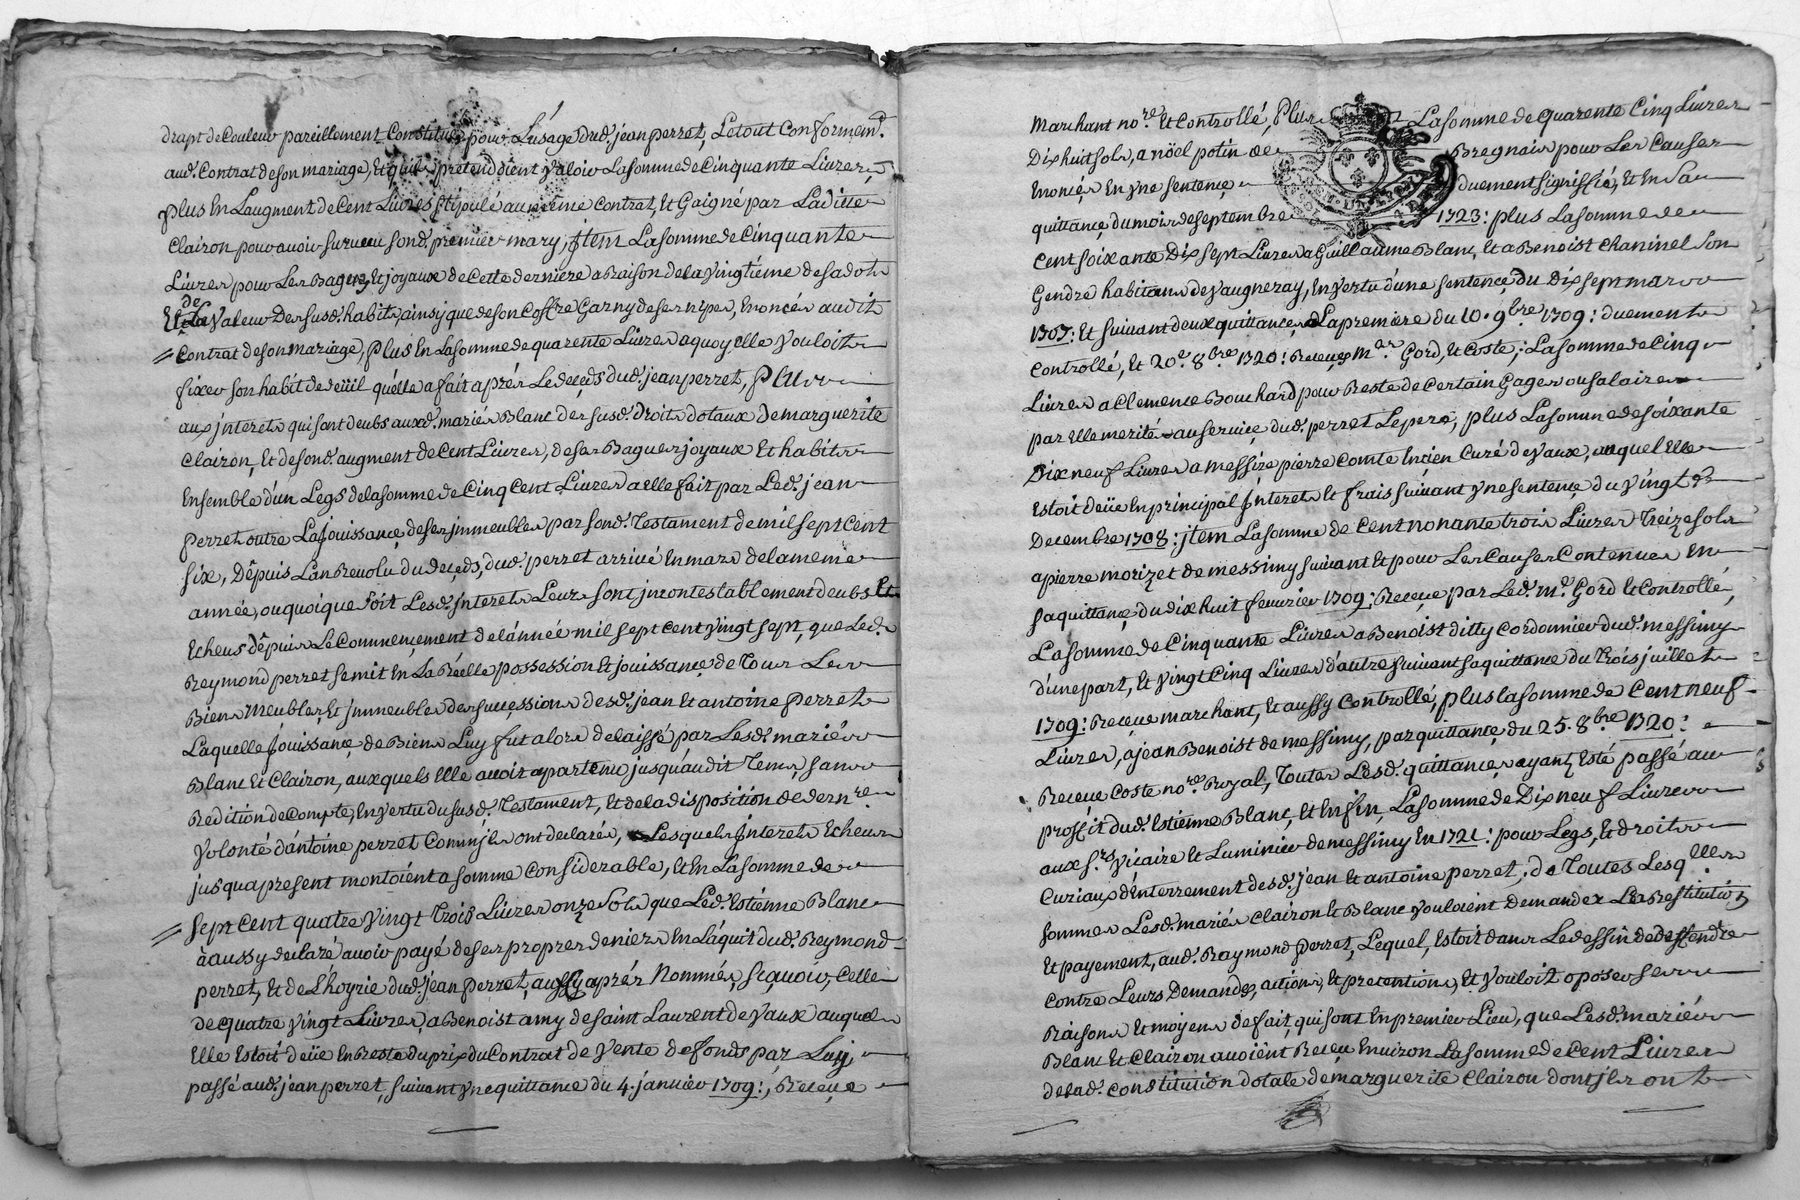 drapt de Couleur pareillement Constitués pour Lusage dud. jean perret, Le tout Conformemt.
aud. Contrat de son mariage, Et qu'ils pretenddient Valoir La somme de Cinquante Livres,
plus En Laugment de Cent Livres stipulé au meme Contrat, Et Gaigné par Laditte
Clairon pour avoir survecu sond. premier mary, jtem La somme de Cinquante
Livres pour Les Bagues Et joyaux de Cette derniere a Raison de la Vingtiéme de sa dot
Et de La Valeur Des susd. habits, ainsy que de son Coffre Garny de ses nipes, Enoncés audit
Contrat de son mariage, plus En La somme de quarente Livres a quoy elle Vouloit
fixer son habit de deüil qu'elle a fait aprés Le deçeds dud. jean perret, plus
aux jnterets qui sont deubs auxd. mariés Blanc des susd. droits dotaux De marguerite
Clairon, Et de sond. augment de Cent Livres, de ses Bagues joyaux Et habits
Ensemble d'un Legs de la somme de Cinq Cent Livres a elle fait par Led. jean
perret outre La Jouissançe de ses jmmeubles par sond. Testament de mil sept Cent
six, Dépuis L'an Revolu du deçeds, dud. perret arrivé En mars de la meme
année, ou quoique soit Lesd. jnterets Leurs sont jncontestablement deubs Et
Echeus dépuis Le Commençement de L'année mil sept Cent Vingt sept, que Led.
Reymond perret se mit En La Réelle possession Et jouissançe de Tous Les
Biens Meubles, Et jmmeubles des sucçessions desd. jean Et antoine Perret
Laquelle Jouissançe de Biens Luy fut alors delaissé par Lesd. mariés
Blanc Et Clairon, auxquels Elle avoit apartenu jusqu'audit Tems, sans
Redition de Compte, En Vertu du susd. Testament, Et de la disposition de dernre.
Volonté d'antoine perret Comm'jls ont declarés, Lesquels Jnterets Echeus
jusqu'apresent montoient a somme Considerable, Et En La somme de
sept Cent quatre Vingt Trois Livres onze Sols que Led. Estienne Blanc
à aussy declaré avoir payé de ses propres deniers En L'aquit dud. Reymond
perret, Et de L'hoyrie dud. jean perret, aussy aprés Nommés, sçavoir, Celle
de quatre Vingt Livres a Benoist amy de saint Laurent de Vaux auquel
Elle Estoit deüe En Reste du prix du Contrat de Vente de fonds par Luy
passé aud. jean perret, suivant Vne quittance du 4. janvier 1709:, Reçeue
Marchant nore. Et Controllé, Plus La somme de quarente Cinq Livres
Dix huit Sols, a nöel potin de Bregnais pour Les Causes
Enoncés En Vne sentençe duement signiffié, Et En Sa
quittançe du mois de septembre 1723: plus La somme de
Cent soixante Dix sept Livres a Guillaume Blanc, Et a Benoist Chaninel son
Gendre habitans de Vaugneray, En Vertu d'une sentençe du Dix sept mars
1707: Et suivant deux quittançes La premiere du 10. 9bre 1709: duement
Controllé, Et 20e. 8bre. 1720: Reçeues Mes Gord, Et Coste,: La somme de Cinq
Livres a Clemence Bouchard pour Reste de Certain Gages ou salaires
par Elle merité au serviçe dud. perret Le pere, plus La somme de soixante
Dix neuf Livres a messire pierre Comte Encien Curé de Vaux, auquel Elle
Estoit deüe En principal Jnterets Et frais suivant Vne sentençe du Vingt
Decembre 1708: jtem La somme de Cent nonante trois Livres Treize sols
a pierre morizet de messimy suivant Et pour Les Causes Contenues En
sa quittançe du dix huit fevrier 1709: Reçeue par Led. me. Gord Et Controllé,
La somme de Cinquante Livres a Benoist ditty Cordonnier dud. messimy
d'une part, Et Vingt Cinq Livres d'autre suivant sa quittance du Trois juillet
1709: Reçeue marchant, Et aussy Controllé, plus la somme de Cent neuf
Livres, a jean Benoist de messimy, par quittançe du 25. 8bre 1720:
Reçeue Coste nore. Royal, Toutes Lesd. quittançes ayant Esté passé au
proffit dud. Estienne Blanc, Et En fin, La somme de Dix neuf Livres
aux Srs. Vicaire Et Luminier de messimy En 1721: pour Legs, Et droits
Curiaux d'Enterrement desd. jean Et antoine perret, de Toutes Lesqlles
sommes Lesd. mariés Clairon Et Blanc vouloient Demander La Restitution
Et payement, aud. Raymond Perret, Lequel, Estoit dans Le dessin de deffendre
Contre Leurs Demandes, actions, Et pretentions, Et Vouloit oposer ses
Raisons Et moyens de fait, qui sont En premier Lieu, que Lesd. mariés
Blanc Et Clairon avoient Reçeu Environ La somme de Cent Livres
de Lad. Constitution dotale de marguerite Clairon dont jls ont